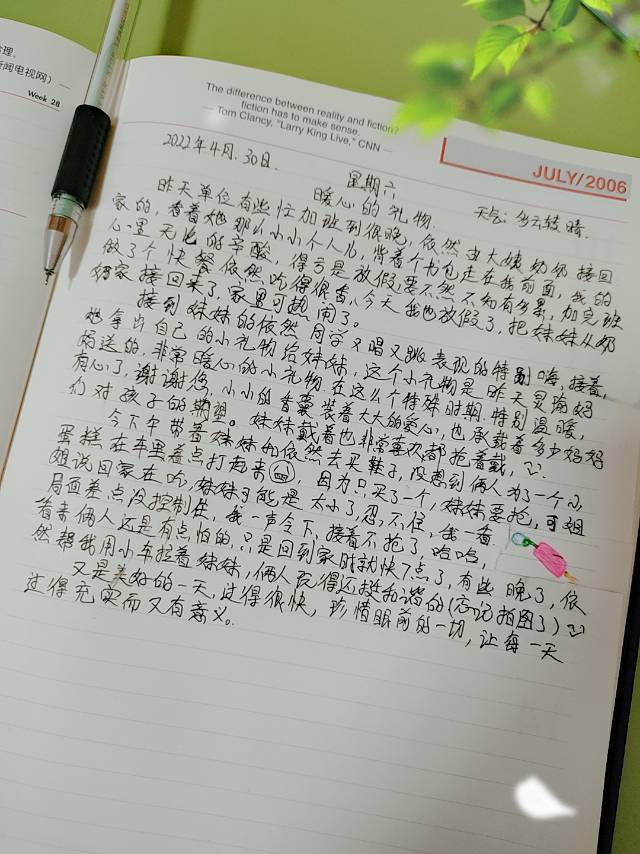 治理.
新闻电视网) —
Week 28
The difference between reality and fiction?
fiction has to make sense.
— Tom Clancy, "Larry King Live," CNN —
JULY/2006
2022年4月.30日. 星期六 天气: 多云转晴.
暖心的礼物.
昨天单位有些忙加班到很晚, 依然由大姨奶奶接回
家的, 看着她那么小小个人儿, 背着个书包走在我前面, 我的
心里无比的辛酸, 得亏是放假, 要不然不知有多累, 加完班
做了个快餐依然吃得很香, 今天我也放假了, 把妹妹从奶
奶家接回来了, 家里可热闹了.
接到妹妹的依然同学又唱又跳表现的特别嗨, 接着,
她拿出自己的小礼物给妹妹, 这个小礼物是昨天灵瑜妈
妈送的, 非常暖心的小礼物, 在这么个特殊时期, 特别温暖,
有心了, 谢谢您, 小小的香囊装着大大的爱心, 也承载着多少妈妈
们对孩子的期望. 妹妹戴着也非常喜欢都抢着戴,
今下午带着妹妹和依然去买鞋子, 没想到俩人为了一个小
蛋糕在车里差点打起来, 因为只买了一个, 妹妹要抢, 可姐
姐说回家在吃, 妹妹可能是太小了忍不住, 我一看
局面差点没控制住, 我一声令下, 接着不抢了, 哈哈,
看来俩人还是有点怕的, 只是回到家时就快7点了, 有些晚了, 依
然帮我用小车拉着妹妹, 俩人反得还挺和谐的(忘记拍图了)
又是美好的一天, 过得很快, 珍惜眼前的一切, 让每一天
过得充实而又有意义.